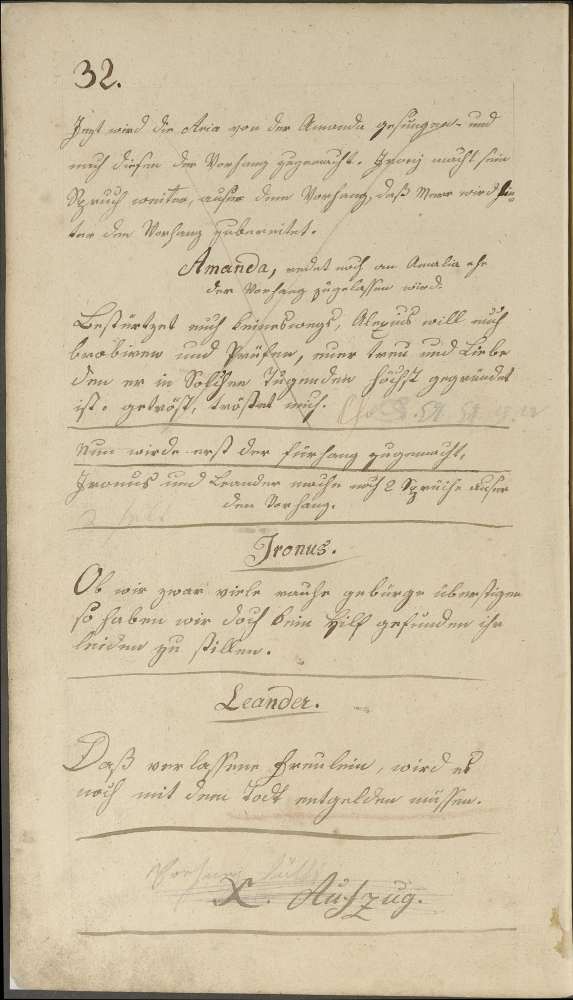 32.
Jezt wird die Aria von der Amanda gesungen und
nach diesen der Vorhang zugemacht. Irony macht sein
Spruch weiter, auser dem Vorhang, daß Meer wird hin-
ter den Vorhang zubereitet.
Amanda, redet noch an Amalia ehe
der Vorhang zugelassen wird.
Bestürtzet euch keineswegs, Alexius will euch
brobieren und Prüfen, euer treu und Liebe
den er in Solchen Tugenden höchst gegründet
ist. getröst, tröstet euch.
Nun wirde erst der fürhang zugemacht,
Ironus und Leander mache noch 2 Sprüche auser
den Vorhang.
Ironus.
Ob wir zwar viele rauhe gebürge überstigen
so haben wir doch kein Hilf gefunden ihr
leiden zu stillen.
Leander.
Daß verlassene Freulein, wird es
noch mit dem todt entgelden müssen.
X. Aufzug.